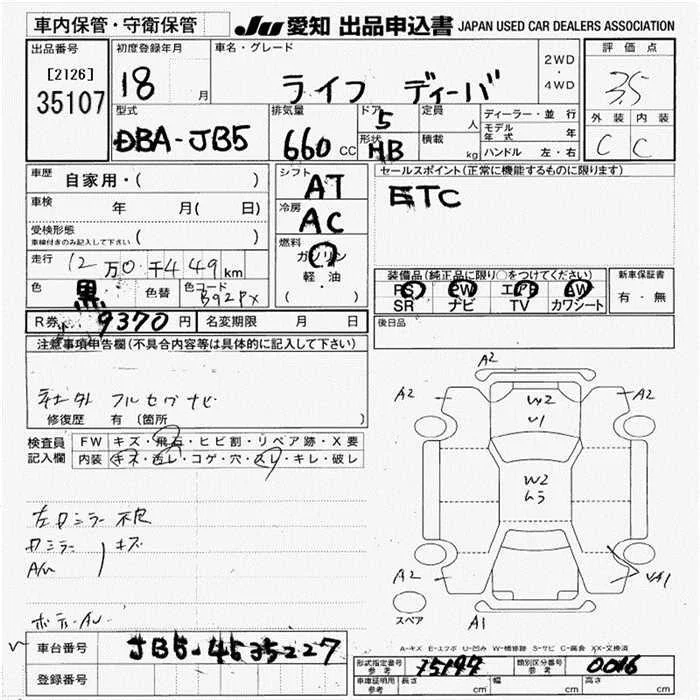 車内保管・守衛保管
JU 愛知 出品申込書 JAPAN USED CAR DEALERS ASSOCIATION
出品番号
[2126]
35107
初度登録年月
18 月
車名・グレード
ライフ ディーバ
2WD
・
4WD
評価点
3.5
外装 内装
C C
型式
DBA-JB5
排気量
660 CC
ドア
5
形状
HB
定員
人
積載
kg
ディーラー・並行
モデル年式 年
ハンドル 左・右
車歴
自家用・( )
車検 年 月( 日)
受検形態
車検付きのみ記入して下さい ( )
走行 12万0千449km
色 黒 色替 色コード B92PX
シフト
AT
冷房
AC
燃料
ガソリン
軽・油
( )
セールスポイント(正常に機能するものに限ります)
ETC
装備品(純正品に限り○をつけてください)
PS PW エアB AW
SR ナビ TV カワシート
新車保証書
有・無
R券 9370円 名変期限 月 日
後日品
注意事項申告欄(不具合内容等は具体的に記入して下さい)
社外 フルセグナビ
修復歴 有〔箇所 〕
検査員
記入欄
FW キズ・飛石・ヒビ割・リペア跡・X要
内装 キズ・汚レ・コゲ・穴・スレ・キレ・破レ
左ドミラー不良
ドミラー キズ
A/W
A2
A2 A2
W2
U1
W2
ムラ
A2
スペア
A1
A-キズ E-エクボ U-凹み W-補修跡 S-サビ C-腐食 XX-交換済
車台番号 JB5-4535227
登録番号
形式指定番号
参考
15197
類別区分番号
参考
0016
車庫証明用
参考
長さ cm 幅 cm 高さ cm